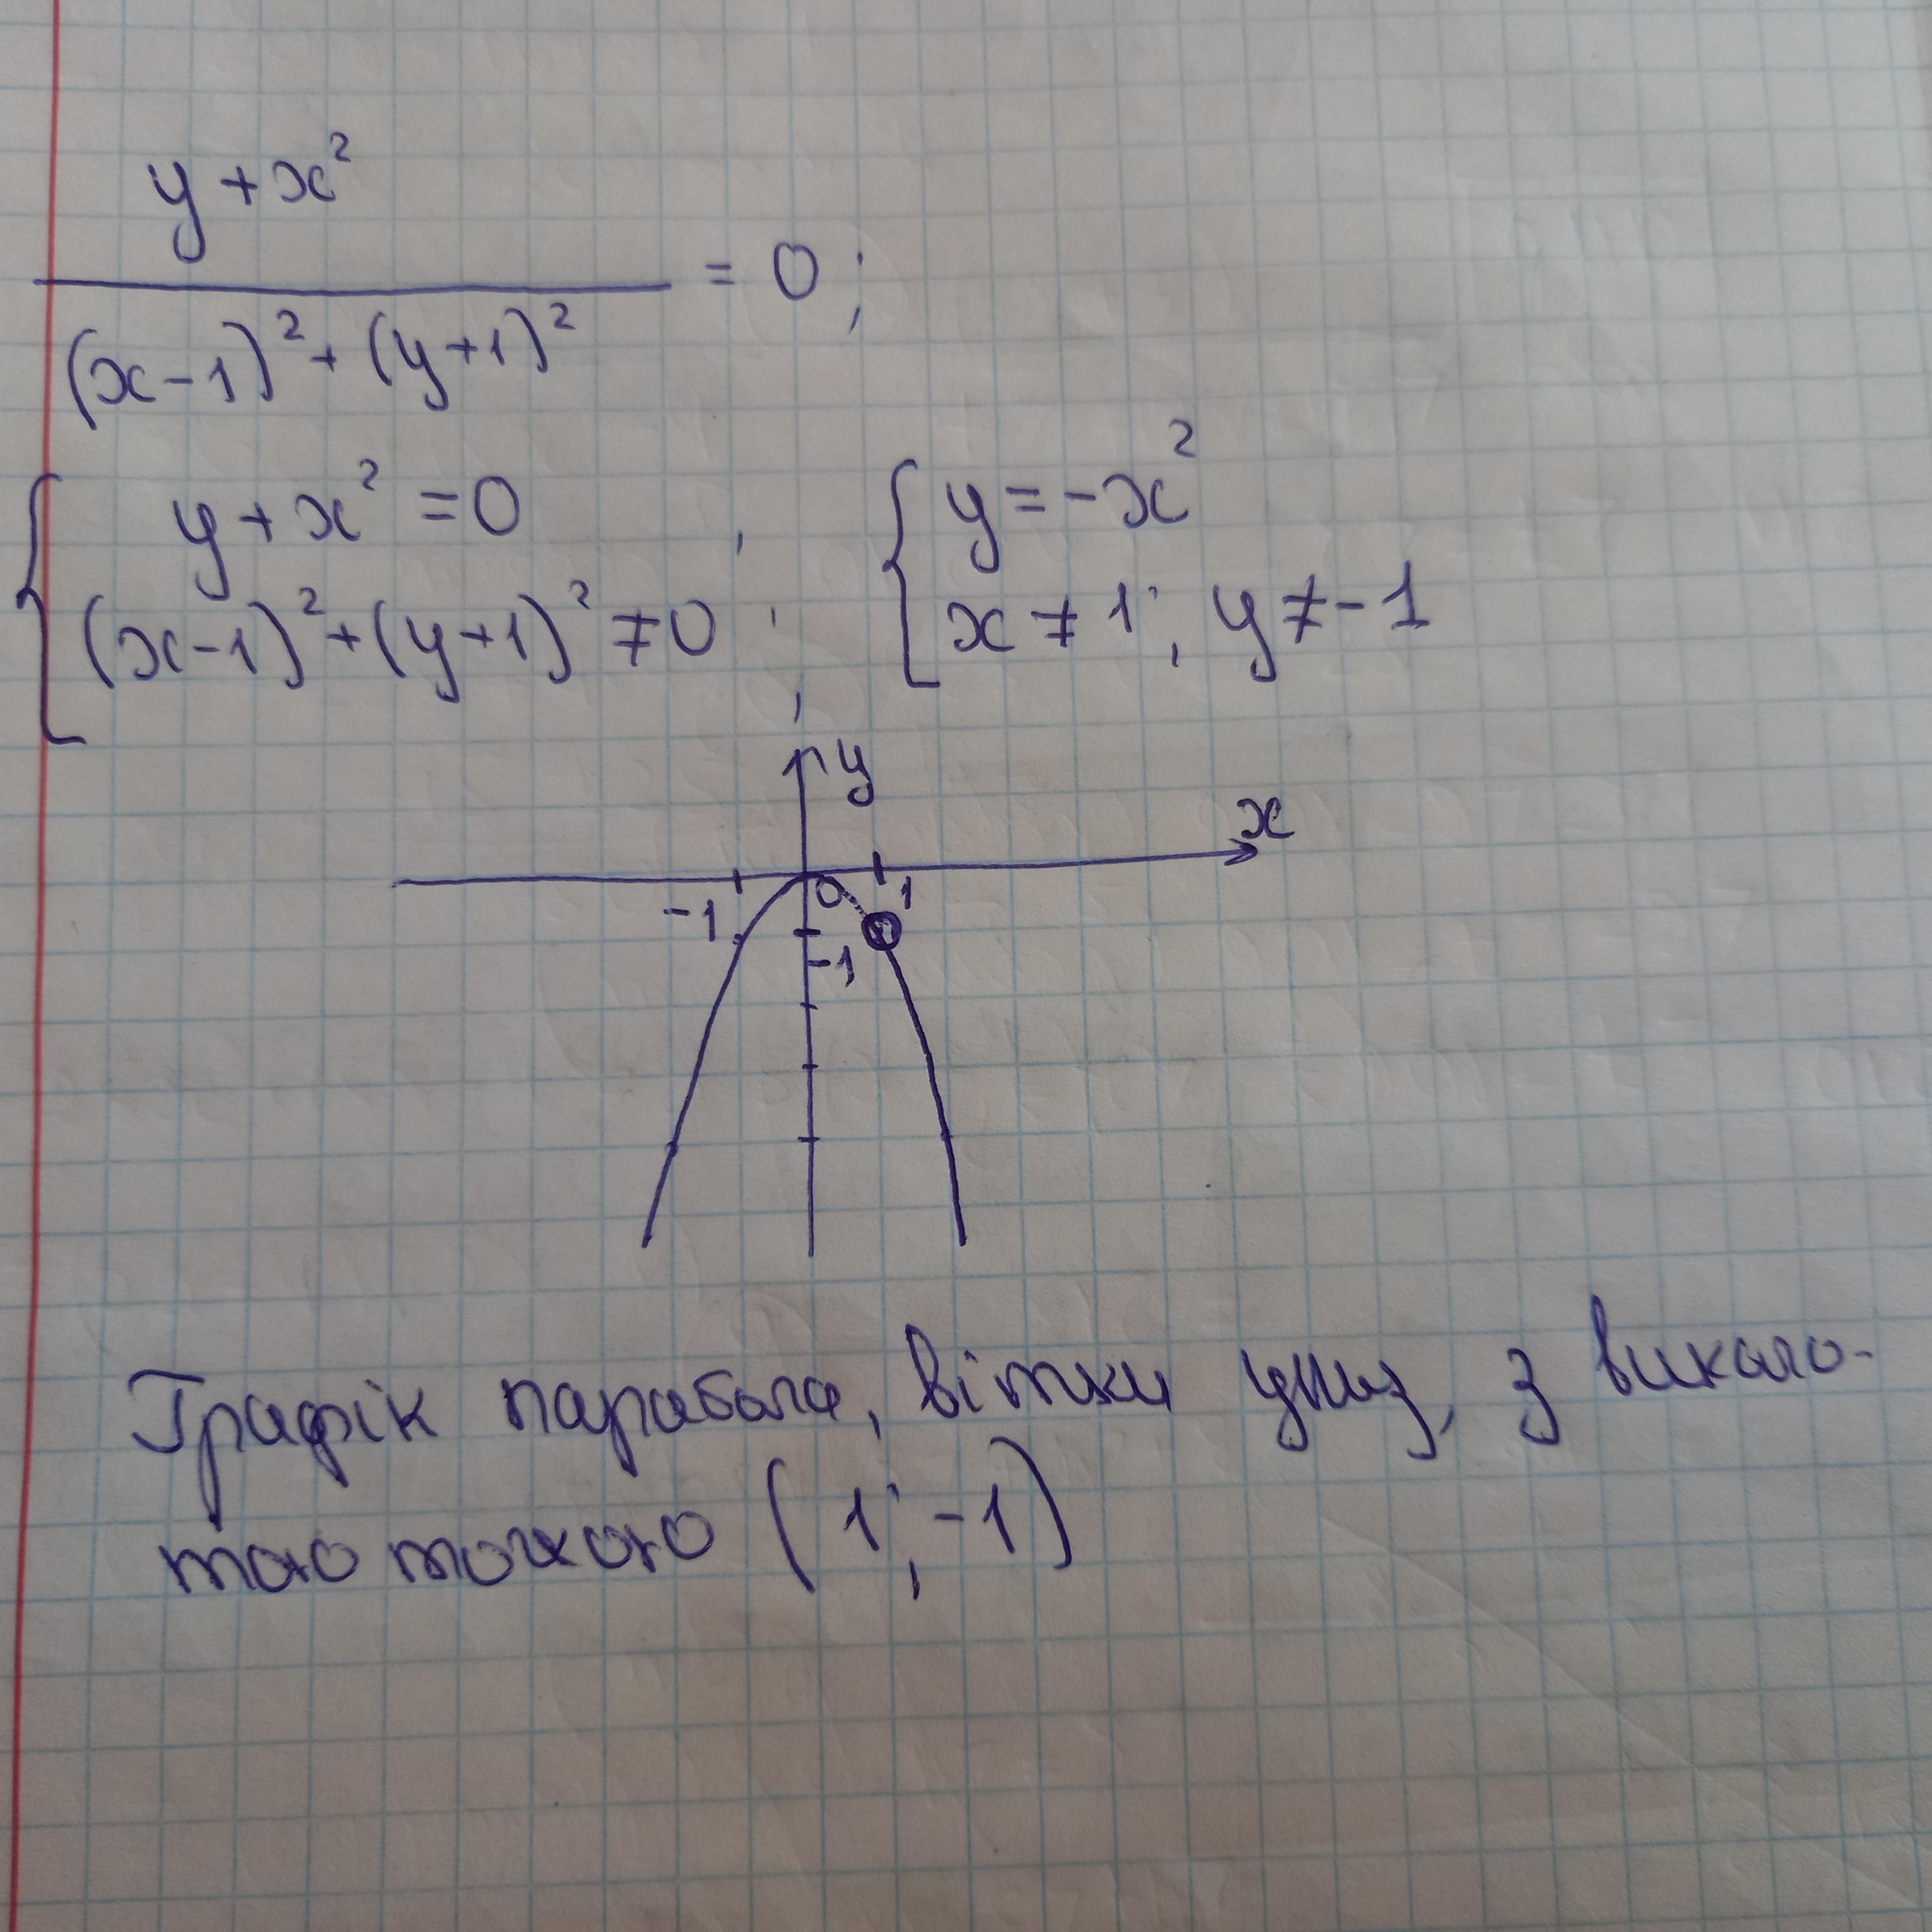 y + x²
(x-1)² + (y+1)² = 0;
{ y + x² = 0 ; { y = -x²
(x-1)² + (y+1)² ≠ 0 ; x ≠ 1; y ≠ -1
y
x
-1 0 1
-1
Графік парабола, вітки униз, з виколо-
тою точкою (1; -1)